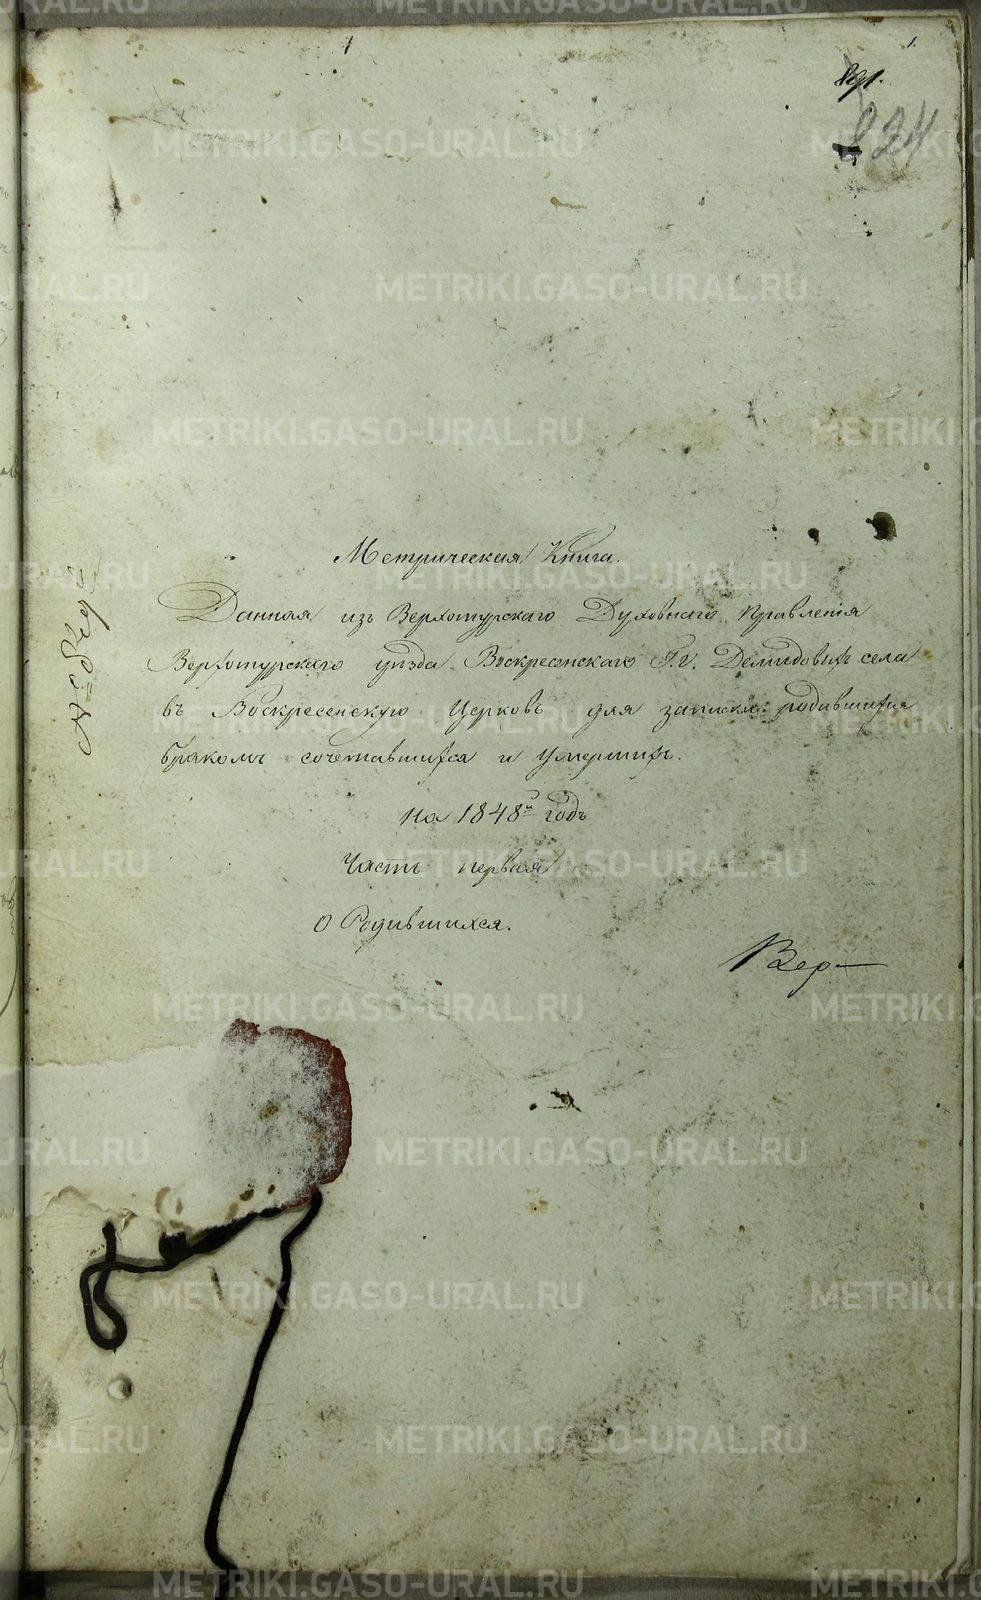 1.
891.
224
Метрическая Книга.
Данная изъ Верхотурскаго Духовнаго Правленія
Верхотурскаго уѣзда Воскресенскаго Г.г. Демидовыхъ села
въ Воскресенскую Церковь для записки родившихся
бракомъ сочетавшихся и умершихъ.
на 1848й годъ
Часть первая
О Родившихся.
Вер
METRIKI.GASO-URAL.RU